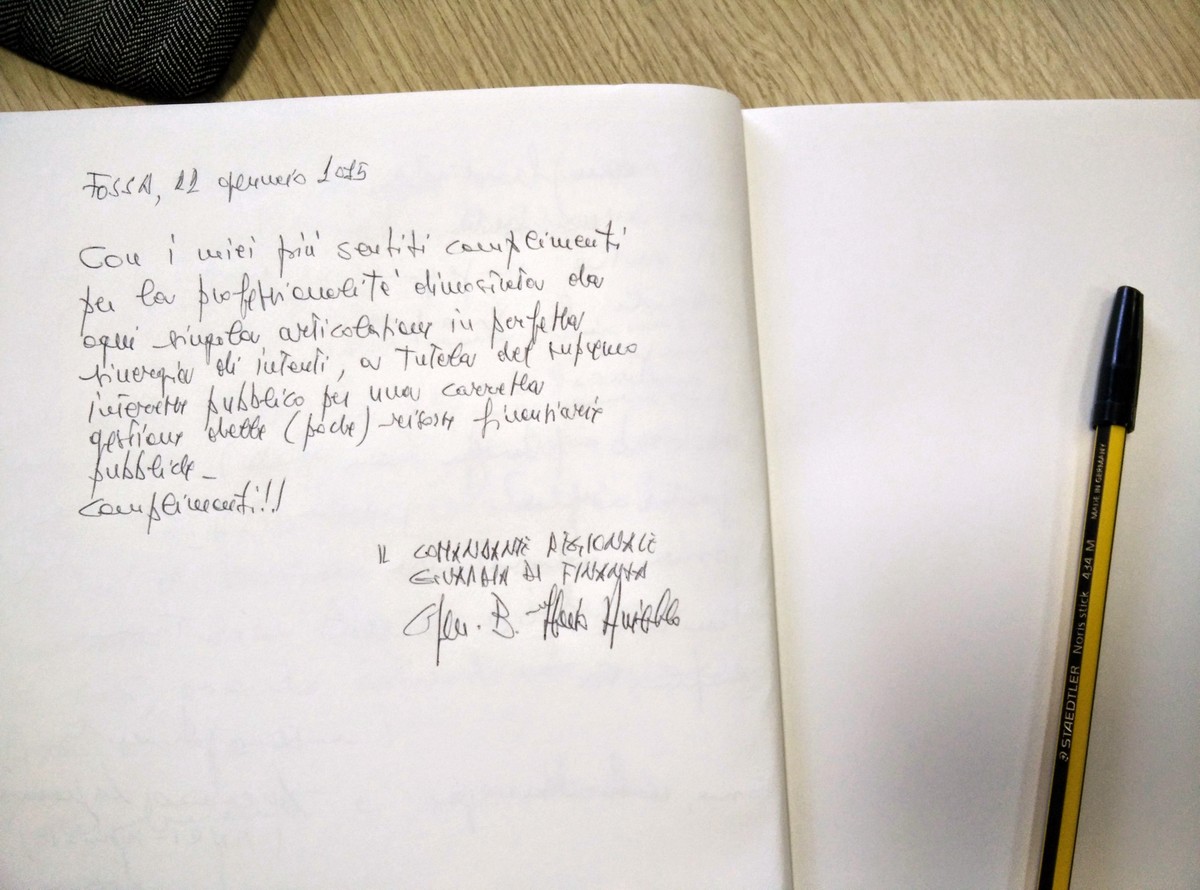 FOSSA, 22 gennaio 2015
Con i miei più sentiti complimenti
per la professionalità dimostrata da
ogni singola articolazione in perfetta
sinergia di intenti, a tutela del supremo
interesse pubblico per una corretta
gestione delle (poche) risorse finanziarie
pubbliche -
Complimenti!!
IL COMANDANTE REGIONALE
GUARDIA DI FINANZA
Gen. B.
STAEDTLER Noris stick 434 M MADE IN GERMANY